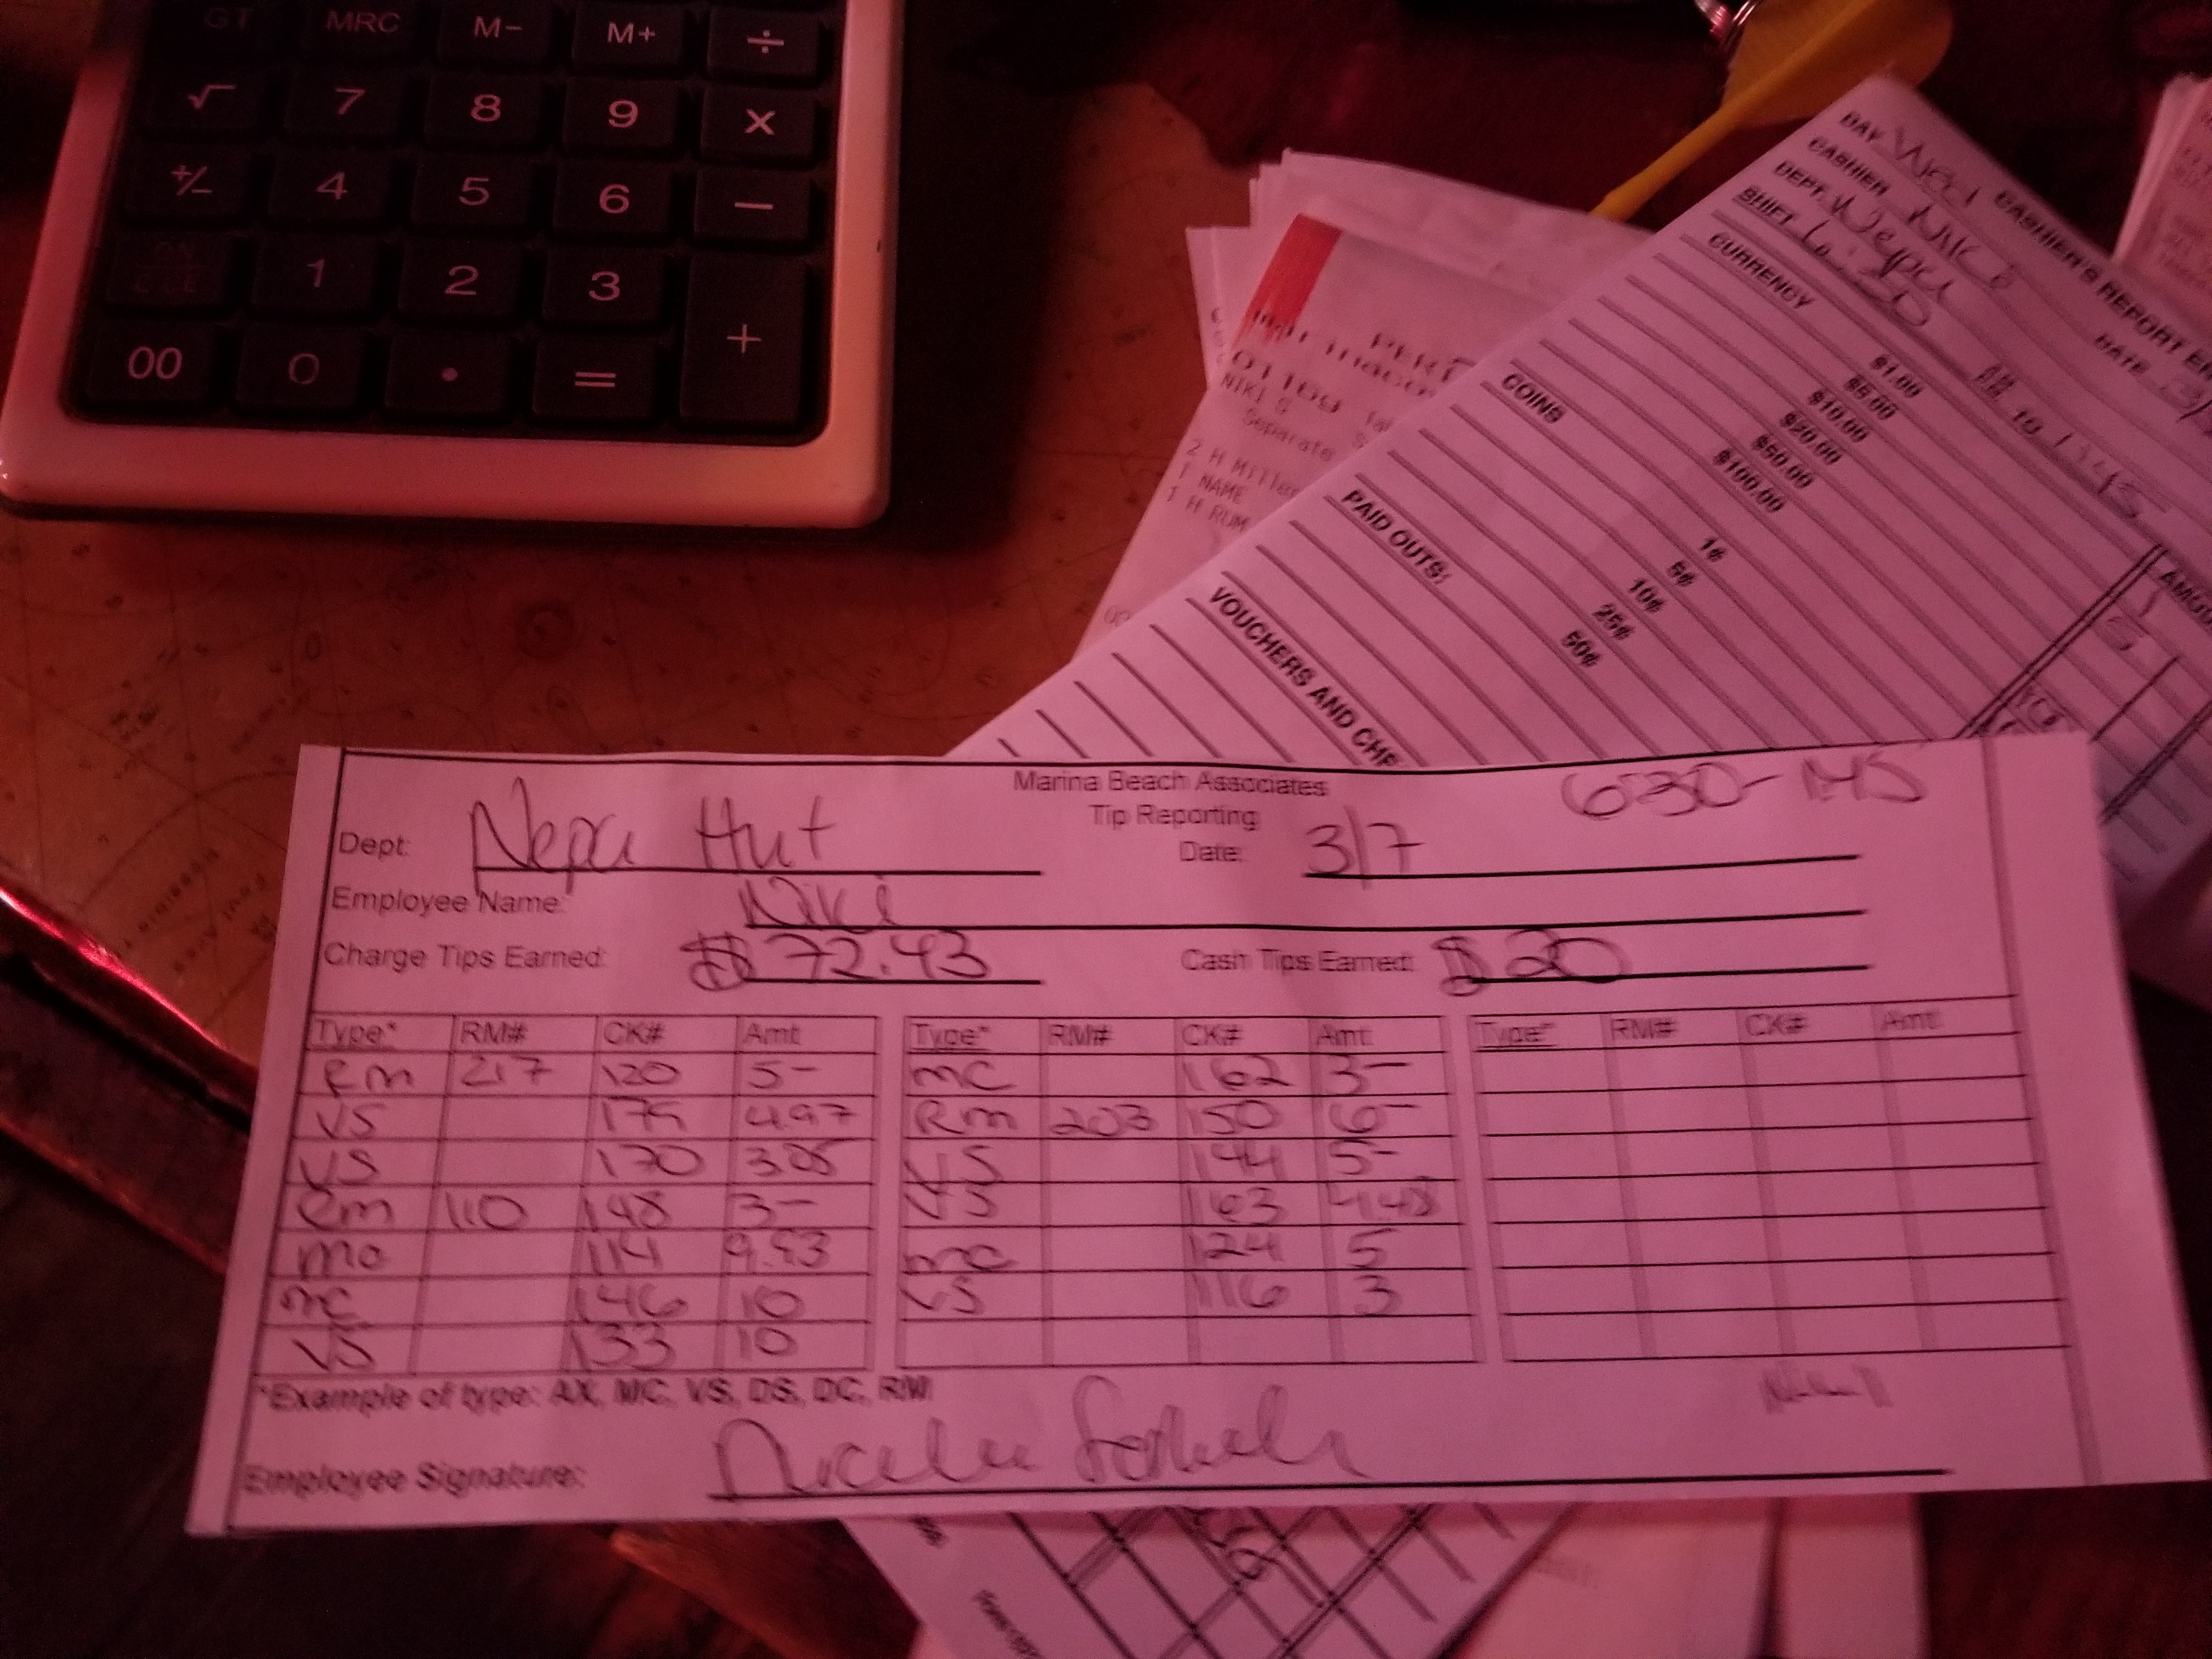 GT MRC M- M+ ÷
√ 7 8 9 x
+/- 4 5 6 −
1 2 3
00 0 . = +
CASHIER'S REPORT
DAY Wed
CASHIER Niki
DATE
DEPT. Nepa
SHIFT 6:30 to 1:45
CURRENCY
$1.00
$5.00
$10.00
$20.00
$50.00
$100.00
COINS
1¢
5¢
10¢
25¢
50¢
PAID OUTS:
VOUCHERS AND
NIKI S
Separate
2 H Miller
1 NAME
1 H RUM
Marina Beach Associates 6:30-1:45
Tip Reporting
Dept: Nepa Hut Date: 3/7
Employee Name: Niki
Charge Tips Earned: $72.43 Cash Tips Earned: $20
Type* RM# CK# Amt Type* RM# CK# Amt Type* RM# CK# Amt
Rm 217 120 5- MC 162 3-
VS 175 4.97 Rm 203 150 6-
VS 170 3.05 VS 144 5-
Rm 110 148 3- VS 163 4.48
MC 114 9.93 MC 124 5
MC 146 10 VS 116 3
VS 133 10
*Example of type: AX, MC, VS, DS, DC, RM
Employee Signature: